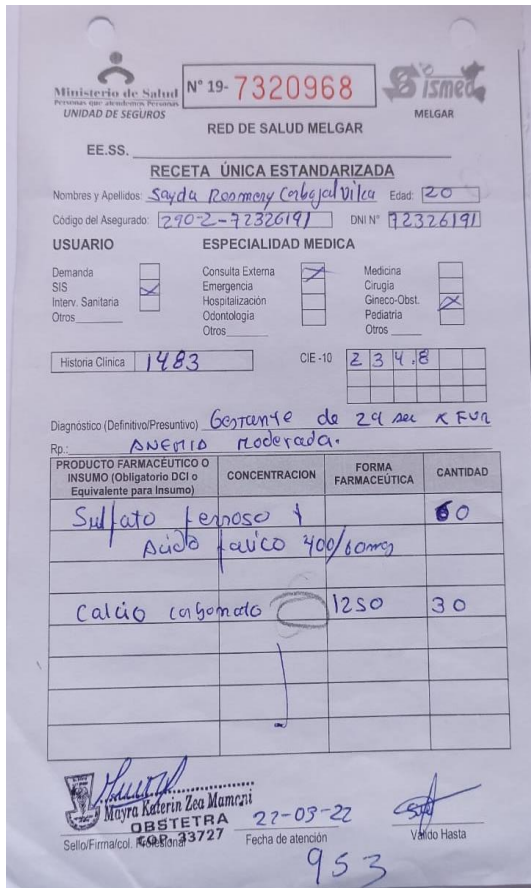 Ministerio de Salud
Personas que atendemos Personas
UNIDAD DE SEGUROS
N° 19- 7320968
Sismed
MELGAR
RED DE SALUD MELGAR
EE.SS.
RECETA ÚNICA ESTANDARIZADA
Nombres y Apellidos: Sayda Rosmery Carbajal Vilca Edad: 20
Código del Asegurado: 290-2-72326191 DNI N° 72326191
USUARIO ESPECIALIDAD MEDICA
Demanda Consulta Externa Medicina
SIS Emergencia Cirugia
Interv. Sanitaria Hospitalización Gineco-Obst.
Otros Odontologia Pediatria
Otros Otros
Historia Clínica 1483 CIE-10 Z34.8
Diagnóstico (Definitivo/Presuntivo) Gestante de 29 sem x FUR
Rp.: ANEMIA Moderada.
PRODUCTO FARMACÉUTICO O INSUMO (Obligatorio DCI o Equivalente para Insumo) CONCENTRACION FORMA FARMACEÚTICA CANTIDAD
Sulfato ferroso + 60
Acido folico 400/60mg
Calcio carbonato 1250 30
Mayra Katerin Zea Mamani
OBSTETRA
COP. 33727
Sello/Firma/col. Profesional
22-03-22
Fecha de atención
Válido Hasta
953